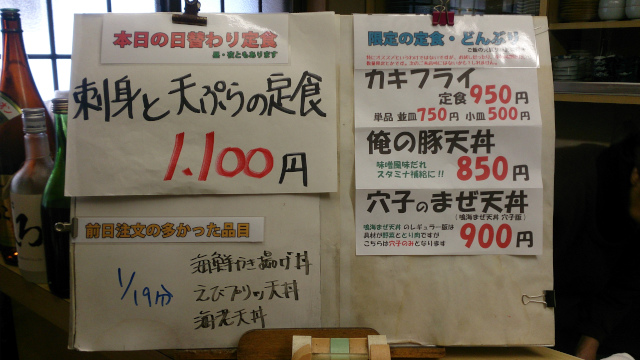 本日の日替わり定食
昼・夜ともあります
刺身と天ぷらの定食
1.100円
前日注文の多かった品目
1/19分
海鮮かき揚げ丼
えびプリッツ天丼
海老天丼
限定の定食・どんぶり
カキフライ
定食950円
単品 並皿750円 小皿500円
俺の豚天丼
味噌風味だれ
スタミナ補給に!!
850円
穴子のまぜ天丼
(鳴海まぜ天丼 穴子版)
鳴海まぜ天丼 のレギュラー版は
具材が野菜ととり肉ですが
こちらは穴子のみとなります
900円
ろ